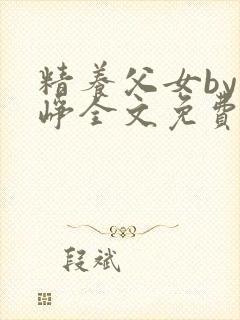 精养父女by
峥全文免費
段斌